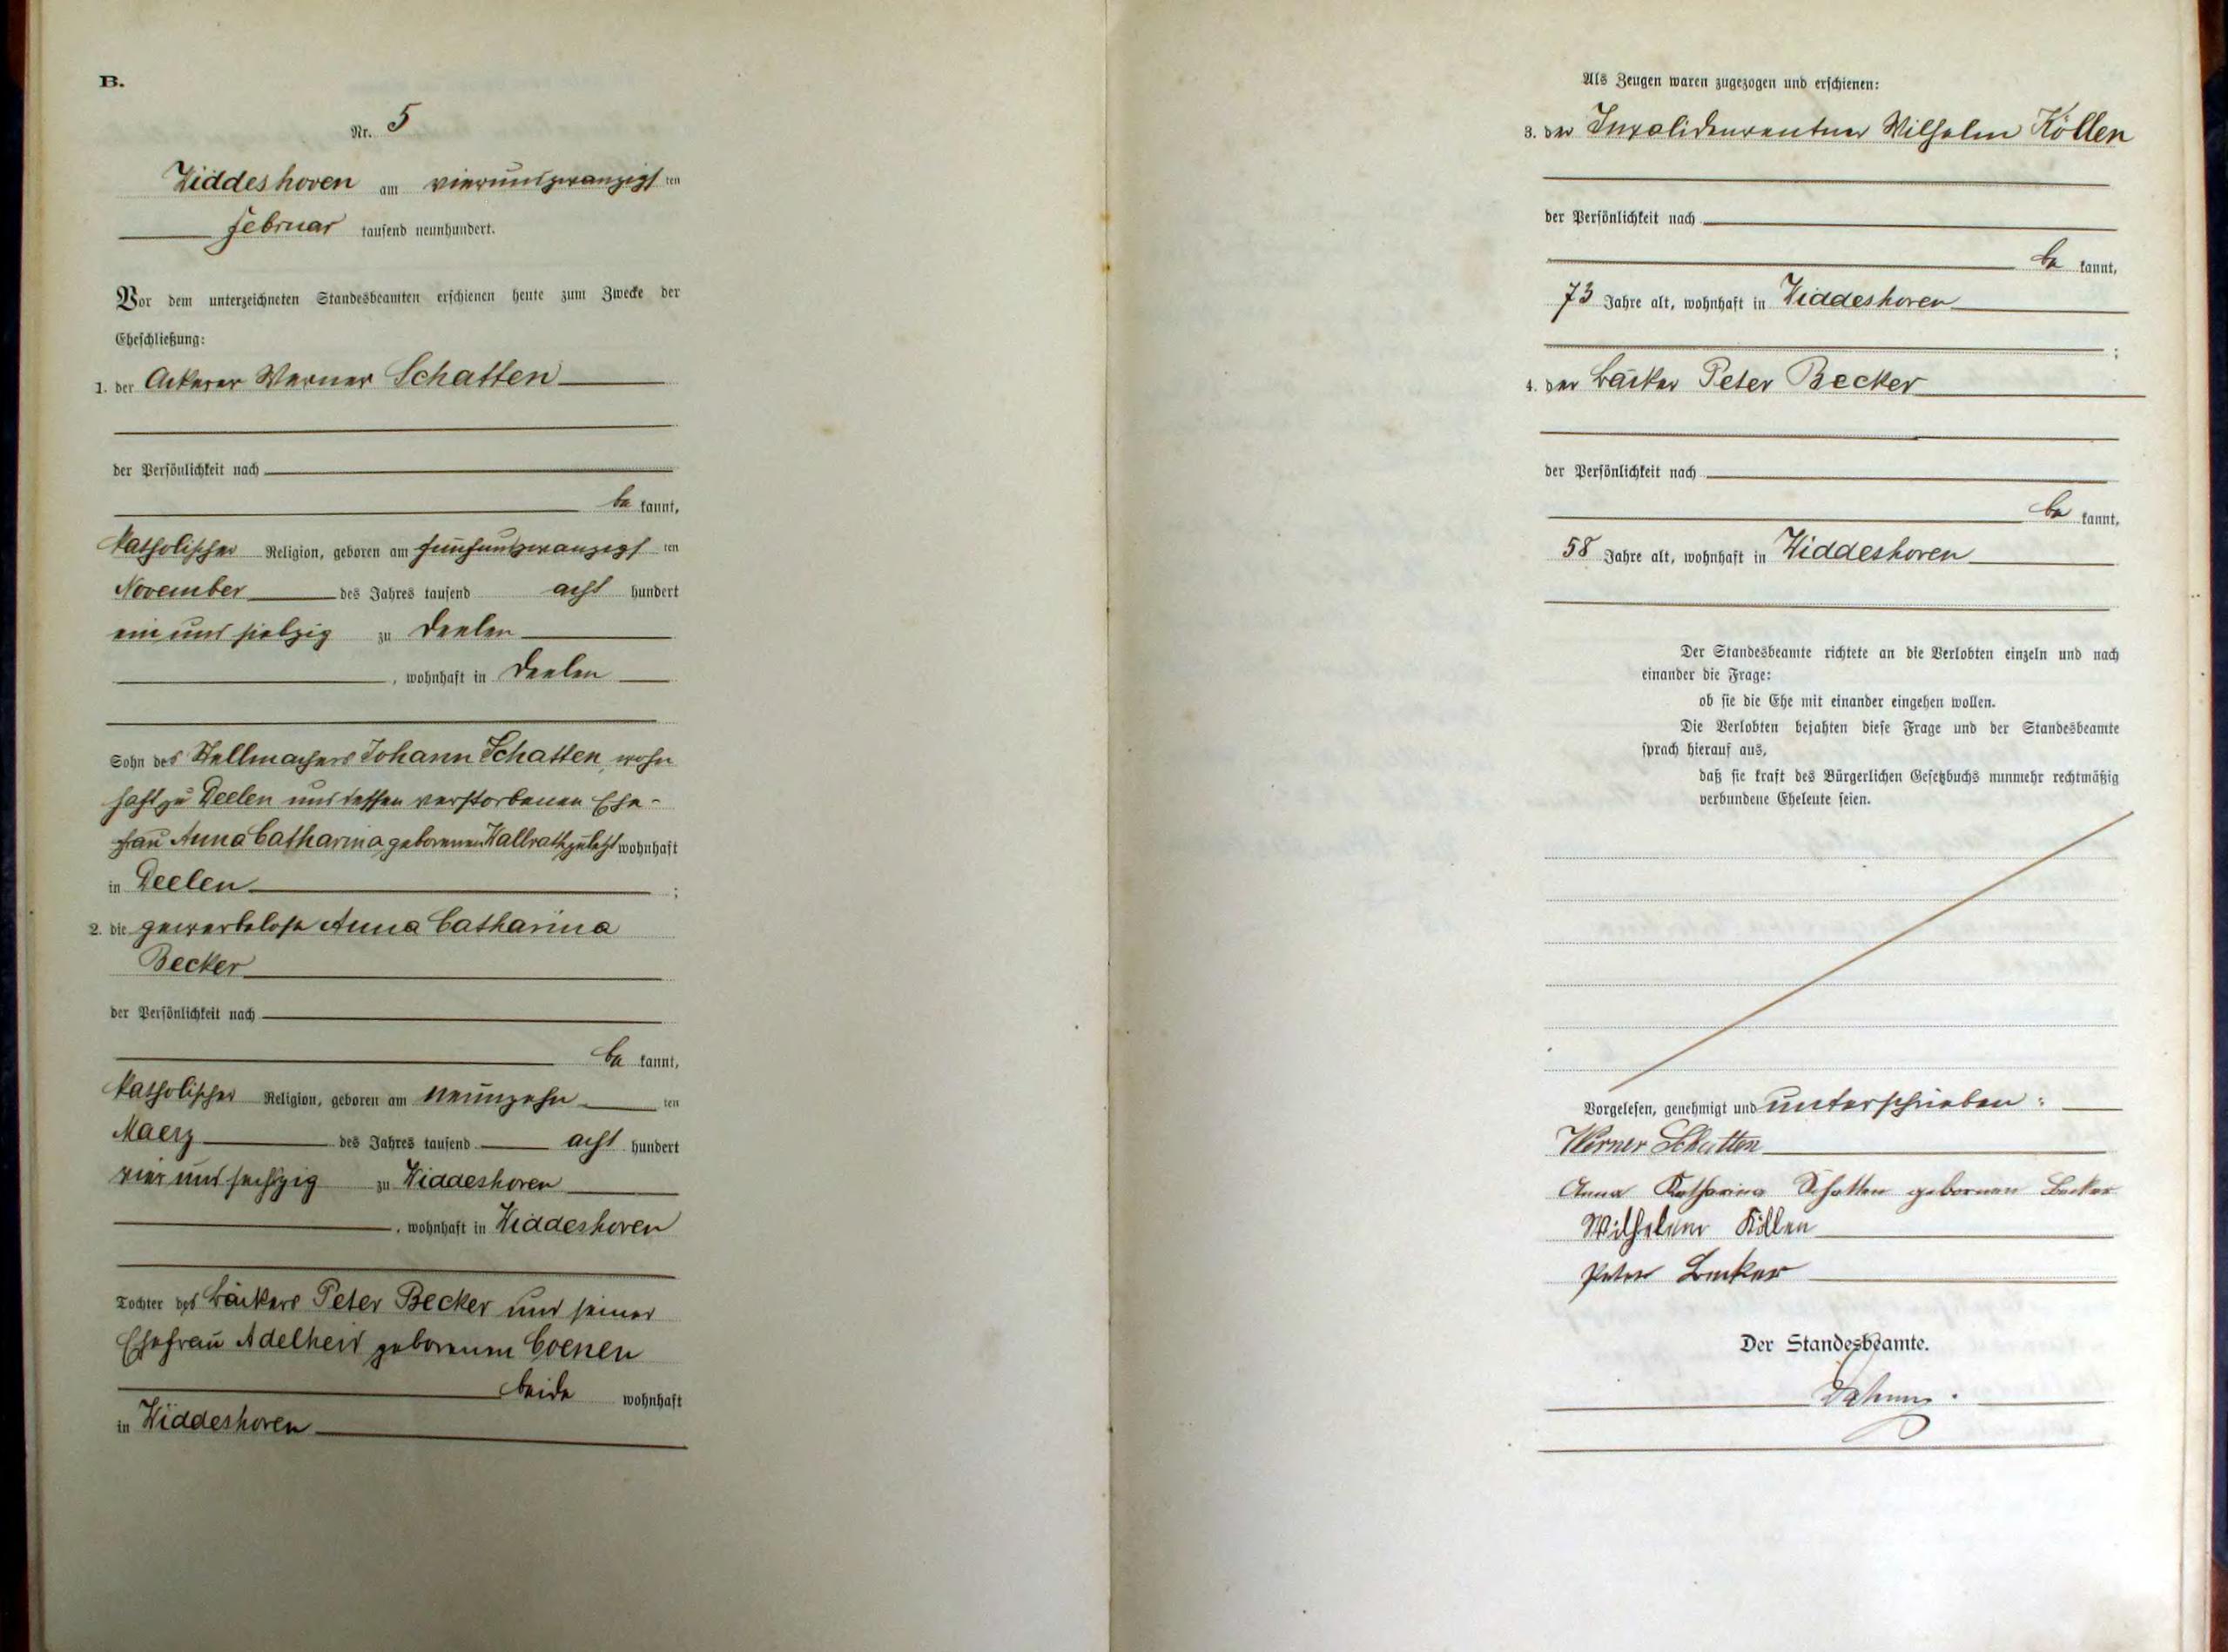 B.
Nr. 5
Hiddeshoven am vierundzwanzigsten
Februar tausend neunhundert.
Vor dem unterzeichneten Standesbeamten erschienen heute zum Zwecke der
Eheschließung:
1. der Ackerer Werner Schatten
der Persönlichkeit nach
bekannt,
katholischer Religion, geboren am fünfundzwanzigsten
November des Jahres tausend acht hundert
ein und siebzig zu Deelen
, wohnhaft in Deelen
Sohn des Stellmachers Johann Schatten, wohn
haft zu Deelen und dessen verstorbenen Ehe-
frau Anna Catharina geborenen Wallrath zuletzt wohnhaft
in Deelen ;
2. die gewerbelose Anna Catharina
Becker
der Persönlichkeit nach
bekannt,
katholischer Religion, geboren am neunzehnten
Maerz des Jahres tausend acht hundert
vier und sechszig zu Hiddeshoven
, wohnhaft in Hiddeshoven
Tochter des Bäckers Peter Becker und seiner
Ehefrau Adelheid geborenen Coenen
beide wohnhaft
in Hiddeshoven
Als Zeugen waren zugezogen und erschienen:
3. der Invalidenrentner Wilhelm Köllen
der Persönlichkeit nach
bekannt,
73 Jahre alt, wohnhaft in Hiddeshoven
;
4. der Bäcker Peter Becker
der Persönlichkeit nach
bekannt,
58 Jahre alt, wohnhaft in Hiddeshoven
Der Standesbeamte richtete an die Verlobten einzeln und nach
einander die Frage:
ob sie die Ehe mit einander eingehen wollen.
Die Verlobten bejahten diese Frage und der Standesbeamte
sprach hierauf aus,
daß sie kraft des Bürgerlichen Gesetzbuchs nunmehr rechtmäßig
verbundene Eheleute seien.
Vorgelesen, genehmigt und unterschrieben:
Werner Schatten
Anna Katharina Schatten geborenen Becker
Wilhelm Köllen
Peter Becker
Der Standesbeamte.